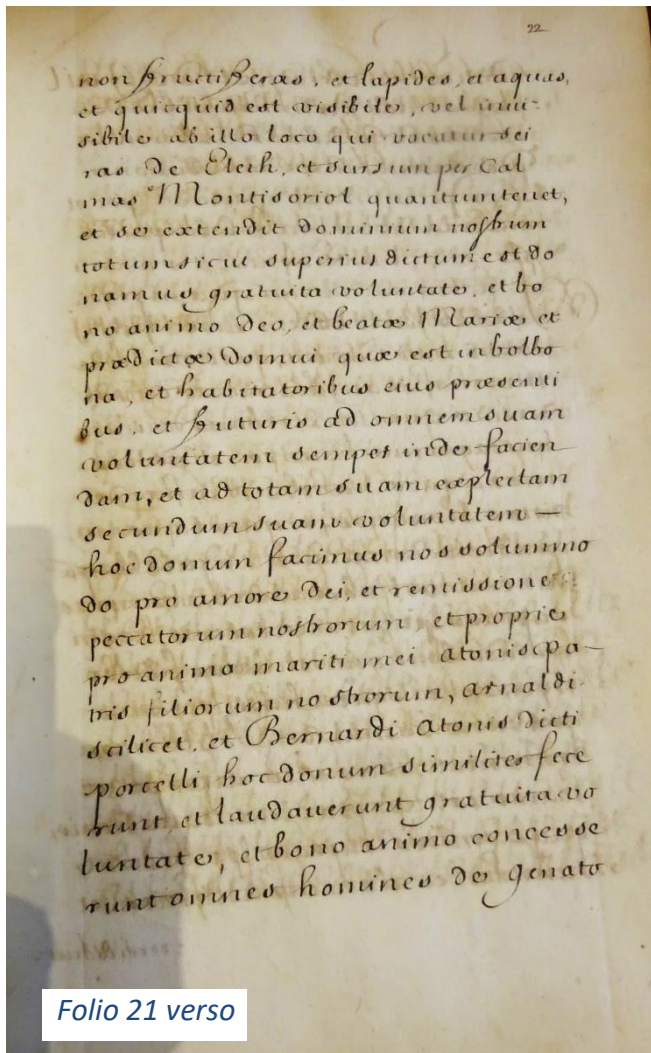 22
non fructiferas, et lapides, et aquas,
et quicquid est visibile, vel inui-
sibile ab illo loco qui vocatur sei
ras de Elech, et sursum per Cal
mas Montisoriol quantum tenet,
et se extendit dominium nostrum
totum sicut superius dictum est do
namus gratuita voluntate, et bo
no animo Deo, et beatæ Mariæ et
prædictæ Domui quæ est in bolbo
na, et habitatoribus eius præsenti
bus, et futuris ad omnem suam
voluntatem semper inde facien
dam, et ad totam suam expletam
secundum suam voluntatem —
hoc donum facimus nos solummo
do pro amore Dei, et remissione
peccatorum nostrorum, et proprie
pro animo mariti mei Atonis pa-
tris filiorum nostrorum, arnaldi
scilicet, et Bernardi Atonis dicti
porcelli hoc donum similiter fece
runt, et laudaverunt gratuita vo
luntate, et bono animo concesse
runt omnes homines de genato
Folio 21 verso